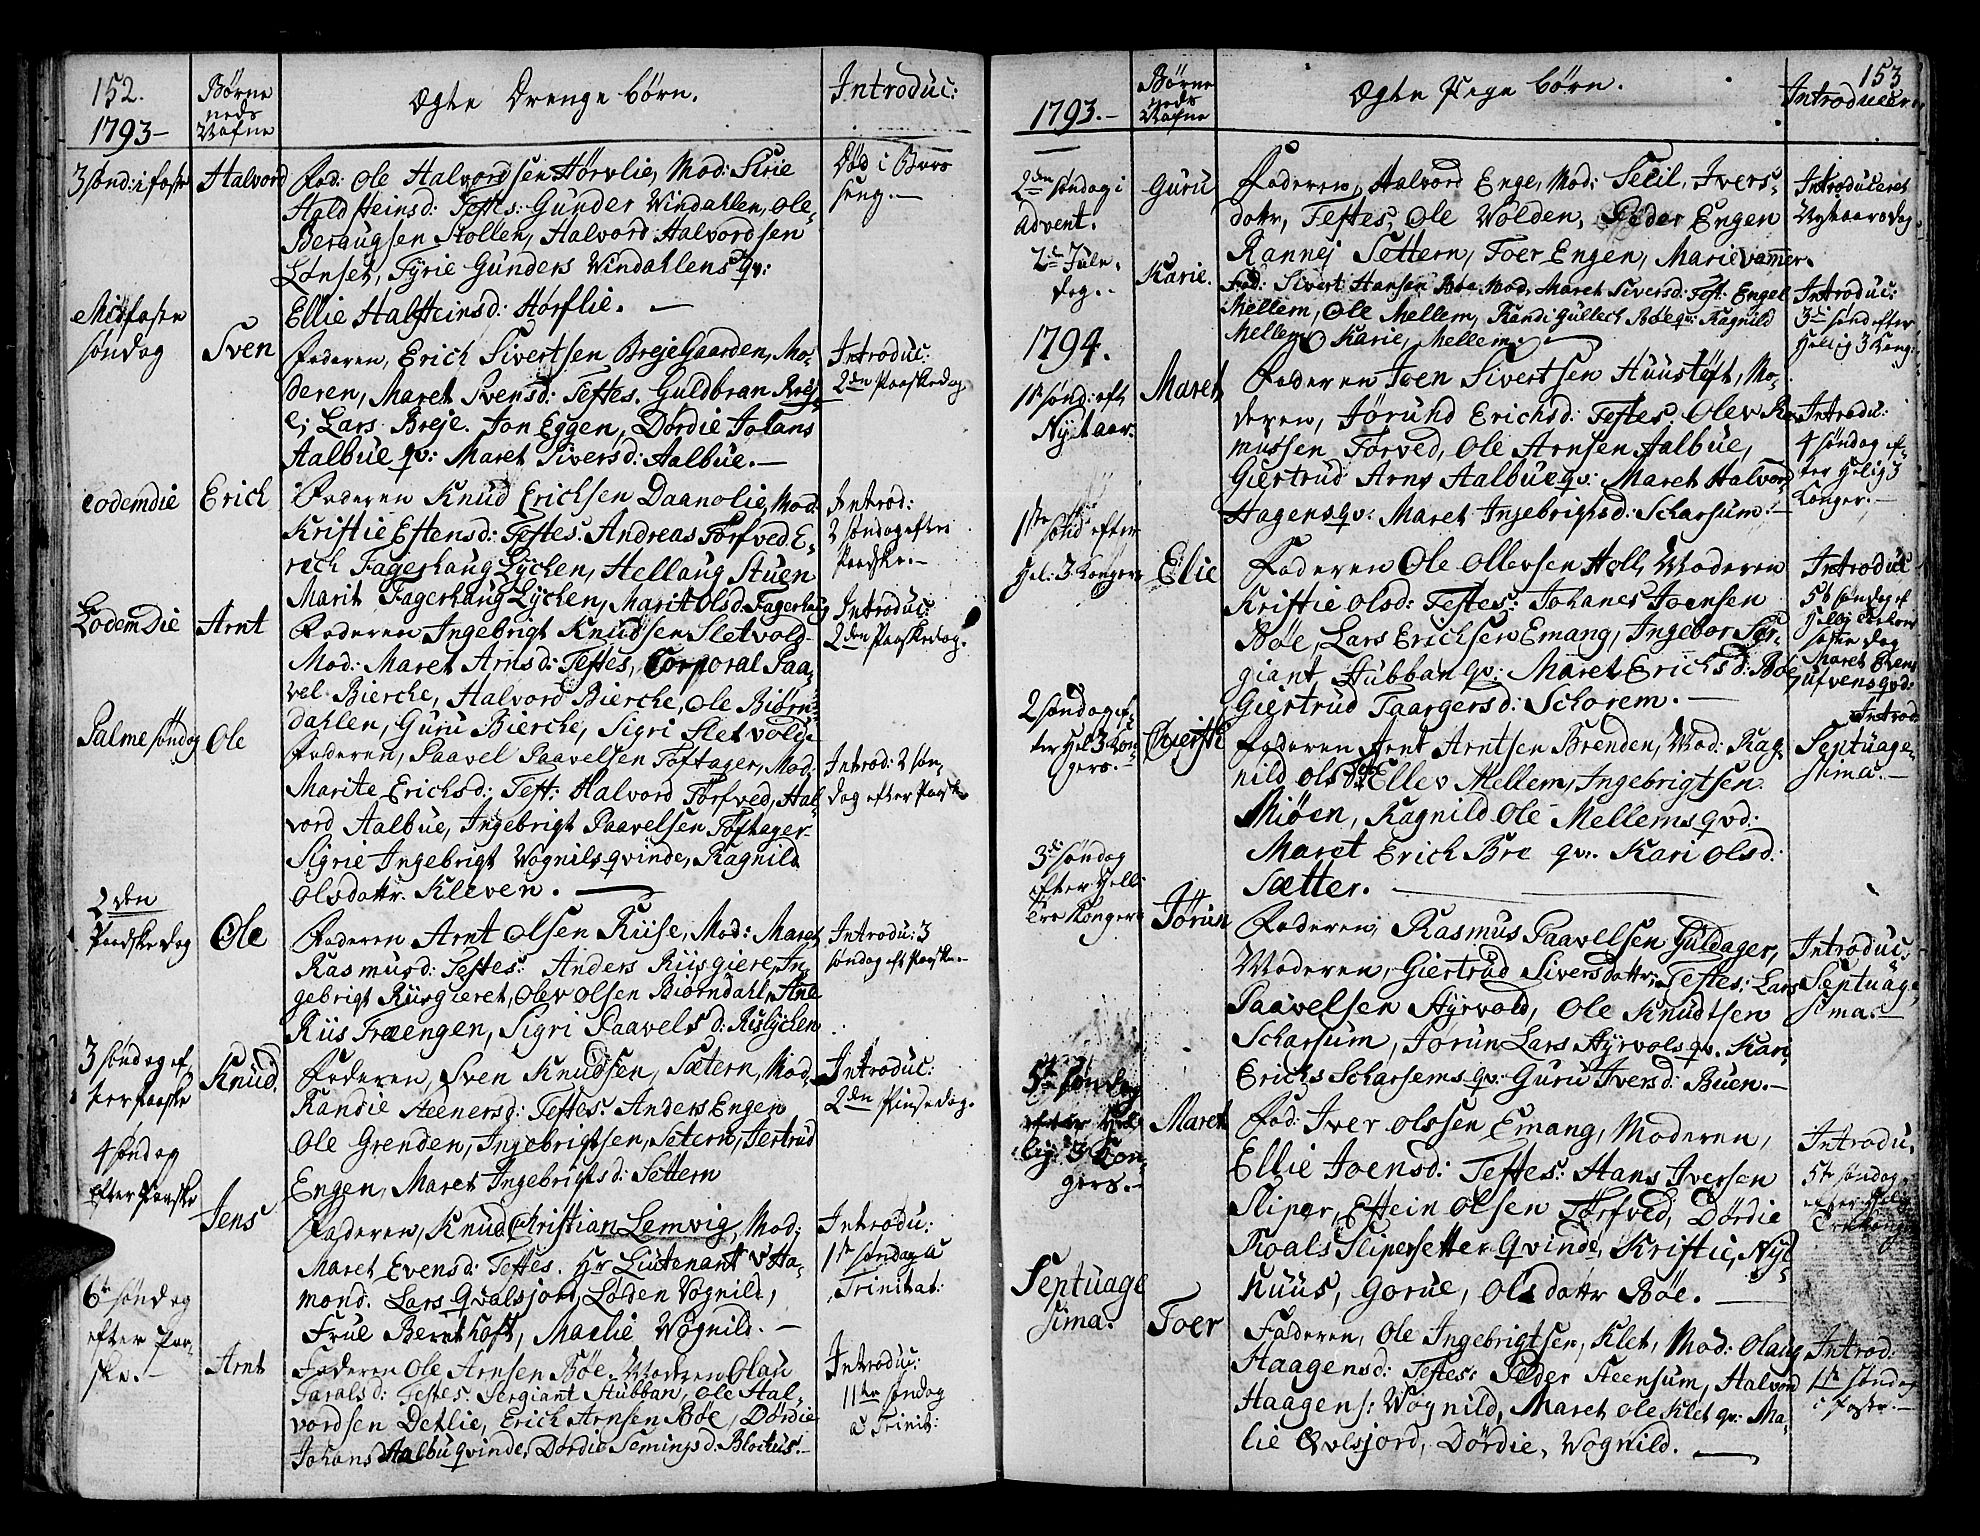 152.
1793-
Børne
neds
Nafne
Ægte Drenge børn.
Introduc:
3 Sønd: i faste
Halvord
Fad: Ole Halvordsen Hørvlie, Mod: Sirie
Haldsteinsd: Testes: Gunder Vindahlen, Ole
Beraugsen Stollen, Halvord Halvordsen
Lønset, Tyrie Gunders Vindahlens qv:
Ellie Halsteinsd: Hørflie. —
Død i Bars
seng. —
Midfaste
søndag
Sven
Faderen, Erich Sivertsen BrejeGaarden, Mo-
deren, Maret Svensd: Testes. Guldbran
Lars Breje. Jon Eggen, Dordie Johans
Aalbue qv: Maret Siversd: Aalbue. —
Introduc:
2den Paaskedag
eodemdie
Erich
Faderen Knud Erichsen Daanolie, Mod:
Kristie Estensd: Testes. Andreas Torfved E-
rich FagerhaugLychen, Hellaug Stuen
Marit FagerhaugLychen, Marit Olsd. Fagerhaug
Introd:
2 Søndag efter
Paaske. —
Eodemdie
Arnt
Faderen Ingebrigt Knudsen Sletvold
Mod: Maret Arnsd: Testes, Corporal Paa-
vel Bierche, Halvord Bierche, Ole Biørn-
dahlen, Guru Bierche, Sigri Sletvold
Introduc:
2den Paaskedag.
Palmesøndag
Ole
Faderen, Paavel Paavelsen Toftager, Mod:
Marite Erichsd: Test: Halvord Torfved, Hal-
vord Aalbue, Ingebrigt Paavelsen Toftager
Sigrie Ingebrigt Vognilsqvinde, Ragnild
Olsdattr. Kleven. —
Introd: 2 Søn-
dag efter Paaske
2den
Paaskedag
Ole
Faderen Arnt Olsen Riise, Mod: Maret
Rasmusd: Testes: Anders Riisgiere, In-
gebrigt Riisgieret, Olev Olsen Biørndahl, Ane
Riis Træengen, Sigri Paavelsd: Rislychen
Introdu: 3
søndag eft Paaske
3 Søndag ef
ter Paaske
Knud.
Faderen, Sven Knudsen, Sætern, Mod
Randie Steenersd: Testes: Anders Engen
Ole Grenden, Ingebrigtsen, Setern, Jertrud
Engen, Maret Ingebrigtsd: Settern
Introduc:
2den Pinsedag.
4 Søndag
Efter Paaske
Jens
Faderen, Knud Christian Lemvig, Mod:
Maret Evensd: Testes. Hr Liutenant v Ha-
mond. Lars Qvalsjord, Loden Vognild,
Frue Bernthoft, Maelie Vognild. —
Introdu:
1ste Søndag a
Trinitat:
6te Søndag
efter Paa-
ske. —
Arnt
Faderen Ole Arnsen Bøe, Moderen Olau
Taralsd: Testes. Sergiant Stubban, Ole Hal-
vordsen Detlie, Erich Arnsen Bøe, Dørdie
Johans Aalbu qvinde, Dordie Semingsd. Bloitus. —
Introduc:
11te Søndag
a Trinit:
153
1793. —
Børne
neds
Nafne
Ægte Pige børn.
Introducer
2den Søndag i
Advent.
Guru
Faderen, Halvord Enge, Mod: Sesil, Ivers-
dattr, Testes, Ole Volden, Peder Engen
Rannej Settern, Toer Engen, Marie Vammer.
Introduceret
Nytaarsdag.
2de Jule-
dag.
Karie.
Fad: Sivert Hansen Bøe Mod: Maret Siversd: Test: Engel
Mellem, Ole Mellem, Randi Gullech Bøe qv: Ragnild
Mellem, Karie, Mellem. —
Introduc:
3die Sønd efter
Hellig 3 Kong:
1794.
1ste sønd: eft
Nytaar.
Maret
Faderen Joen Sivertsen Huustoft, Mo-
deren, Jørund Erichsd: Testes. Olev Ra-
mussen Torved, Ole Arnsen Aalbue,
Giertrud Arns Aalbue qv: Maret Halvor
Hagens qv: Maret Ingebrigtsd: Scharsum. —
Introdu:
4 søndag ef-
ter Helig 3
Konger. —
1ste Sønd efter
Hel: 3 Konger
Elie
Faderen Ole Ollevsen Holl, Moderen
Kristie Olsd: Testes: Johanes Joensen
Bøe, Lars Erichsen Emang, Ingebor Ser-
giant Stubban qv: Maret Erichsd: Bøe
Giertrud Taargersd: Schorem. —
Introduc
5te søndag ef
2 Søndag ef-
ter Hel 3 Kon-
gers. —
Faderen Arnt Arntsen Brenden, Mod: Rag-
nild Olsd: Ellev Mellem, Ingebrigtsen
Miöen, Ragnild Ole Mellems qvd:
Maret Erich Bre qv. Kari Olsd:
Sætter. —
Introd
Septuage-
sima. —
3die Søndag
efter Hell:
Tre Konger
Jørun
Faderen, Rasmus Paavelsen Guldager,
Moderen, Giertrud Siversdattr: Testes: Lars
Paavelsen Hyrvold, Ole Knudtsen
Scharsum, Jorun Lars Hyrvols qv. Kari
Erichs Scharsems qv: Guru Iversd: Buen. —
Introduc:
Septuage
sima. —
5te Søndag
efter Hel-
lig 3 Kon-
gers. —
Maret
Fad: Iver Olssen, Emang, Moderen,
Ellie Joensd: Testes: Hans Iversen
Sliper, Estein Olsen Torfved, Dørdie
Roals Slipersetter Qvinde, Kristie, Nyl
huus, Gorue, Olsdattr Bøe. —
Introdu.
5te søndag
efter Hellig
Tre konger
Septuage
sima.
Toer
Faderen, Ole Ingebrigtsen, Klet, Mod: Olaug
Haagensd: Testes: Peder Steensum, Halvord
Haagens: Vognild, Maret Ole Klet qv: Ma-
lie Qvlsjord, Dørdie, Vognild. —
Introd:
1ste Søndag
i Faste. —